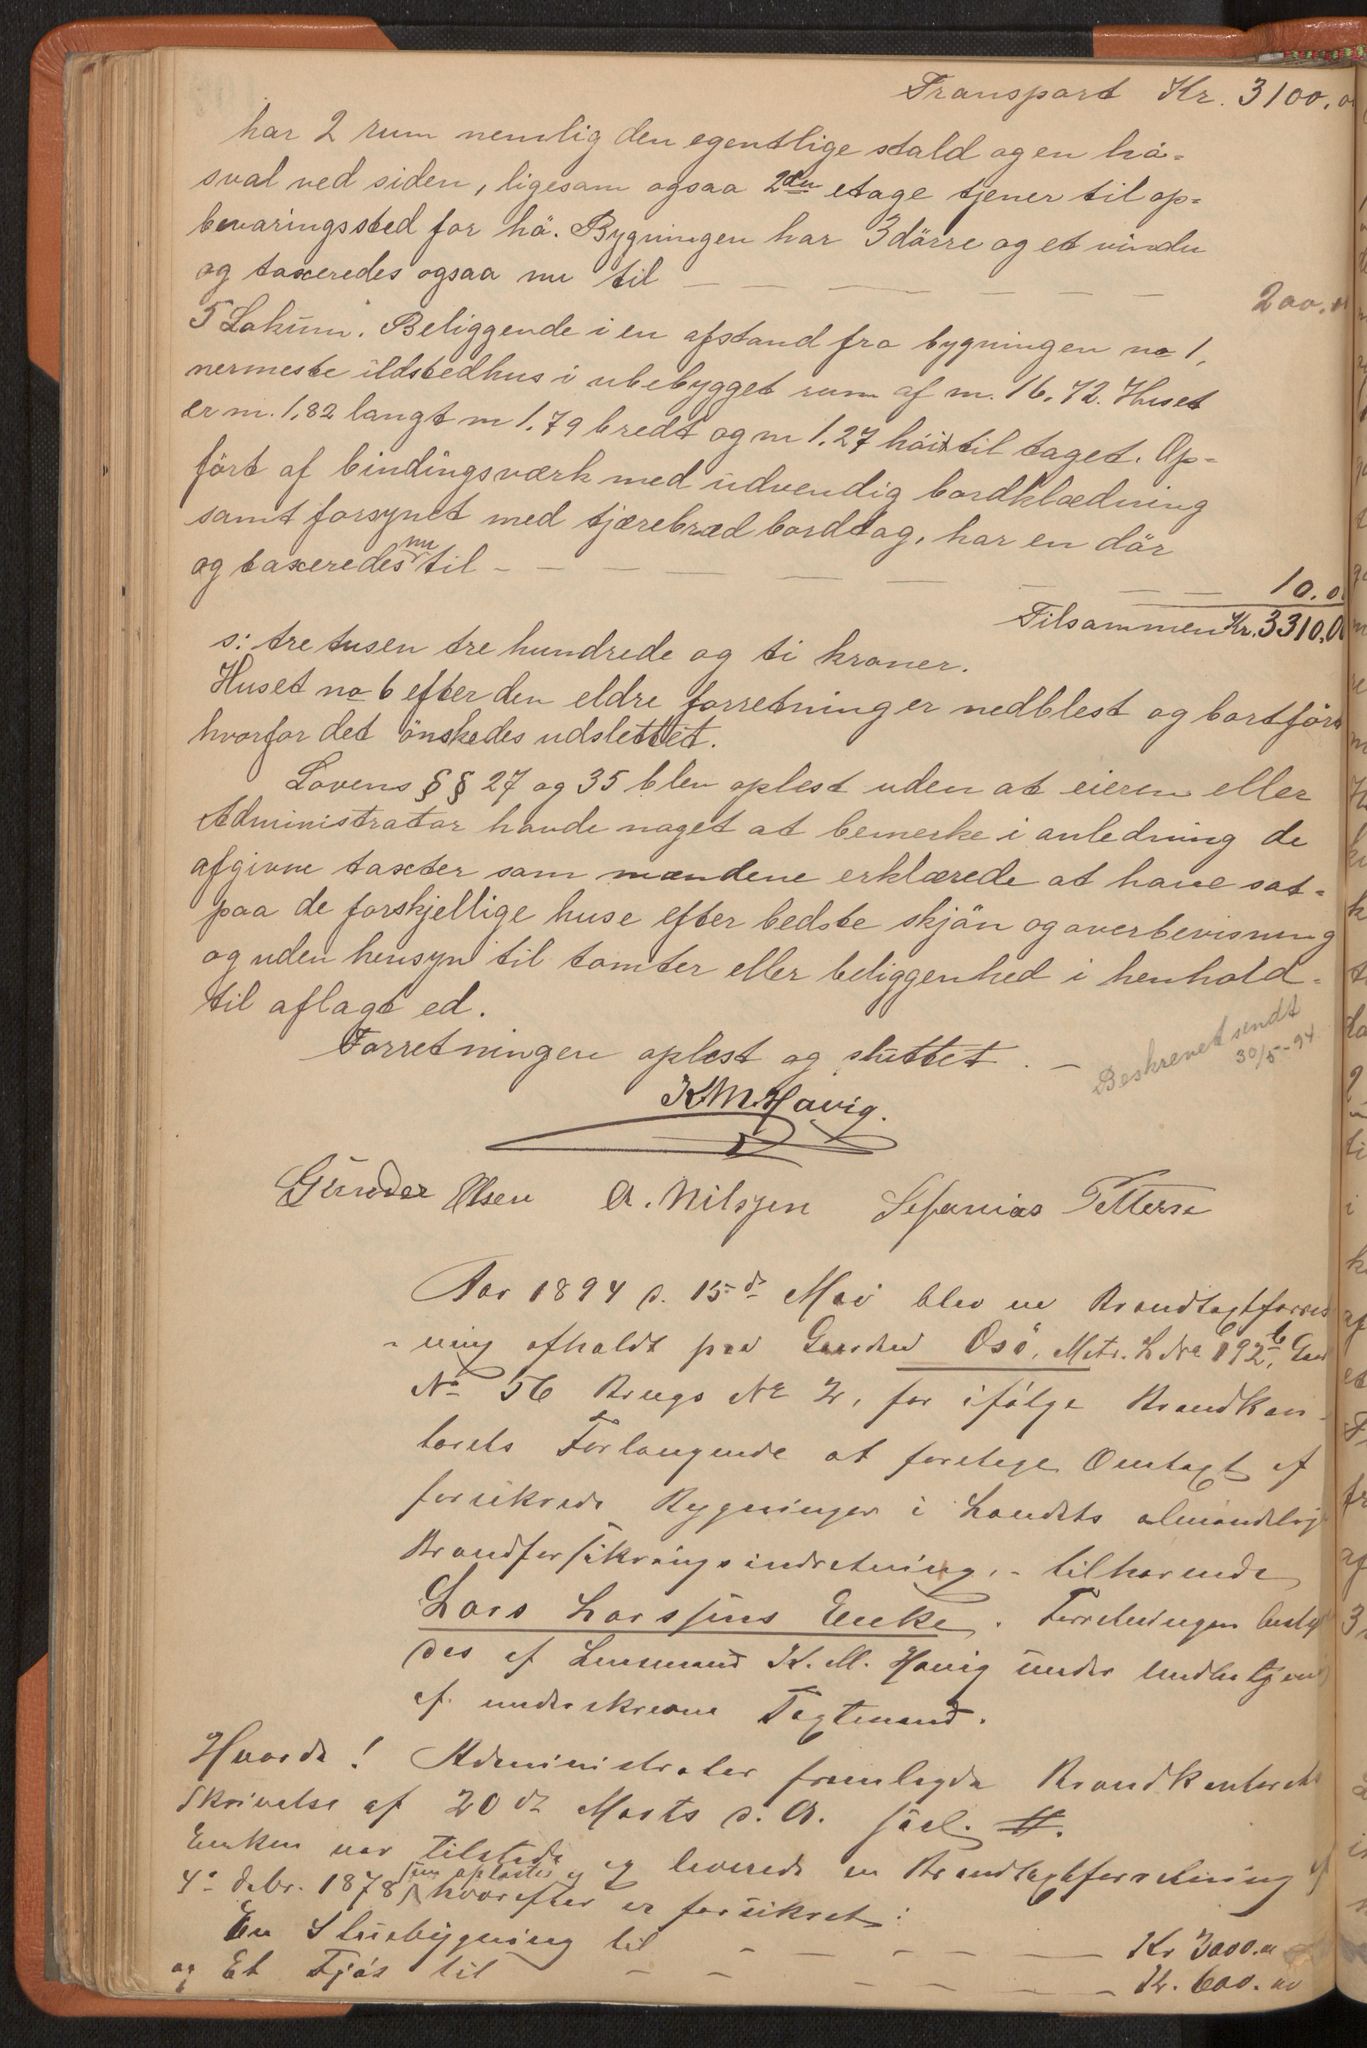 Transport Kr. 3100,0
har 2 rum nemlig den egentlige stald og en hö-
sval ved siden, ligesom ogsaa 2den etage tjener til op-
bevaringssted for hö. Bygningen har 3 dörre og et vindu
og taxeredes ogsaa nu til — — — — — — 200,0
5 Lokum. Beliggende i en afstand fra bygningen no 1,
nermeste ildstedhus i ubebygget rum af m. 16,72. Huset
er m. 1,82 langt m 1,79 bredt og m 1,27 höit til taget. Op-
fört af bindingsværk med udvendig bordklædning
samt forsynet med tjærebræd bordtag, har en dör
og taxeredes nu til — — — — — — — — 10.0
Tilsammen Kr. 3310,0
s: tre tusen tre hundrede og ti kroner.
Huset no 6 efter den eldre forretning er nedblest og bortfört
hvorfor det önskedes udslettet.
Lovens §§ 27 og 35 blev oplest uden at eieren eller
Administrator havde noget at bemerke i anledning de
afgivne taxter som mændene erklærede at have sat-
paa de forskjellige huse efter bedste skjön og overbevisning
og uden hensyn til tomter eller beliggenhed i henhold-
til aflagt ed.
Forretningen oplest og sluttet. —
Beskrevet sendt
30/5-94
K.M. Havig.
Gunder Olsen A. Nilsen Sefanias Petterse
Aar 1894 d. 15de Mai blev en Brandtaxtforret
-ning afholdt paa Gaarden Osö, Matr. L No 192b, Gaar
No 56 Brugs No 2, for ifölge Brandkon-
torets Forlangende at foretage Omtaxt af
forsikrede Bygninger i Landets almindelig
Brandforsikringsindretning, - tilhörende
Lars Larssens Enke. Forretningen besty
des af Lensmand K. M. Havig under
af underskrevne Taxtmænd.
Hvorda! Administrator fremlagde Brandkontorets
Skrivelse af 20de Marts d. A.
Enken var tilstede og leverede en Brandtaxtforretning af
4de Debr. 1878 som oplæstes og hvorefter er forsikret:
En Stuebygning til — — — — — Kr 3000.00
og Et Fjös til — — — — — Kr. 600.00